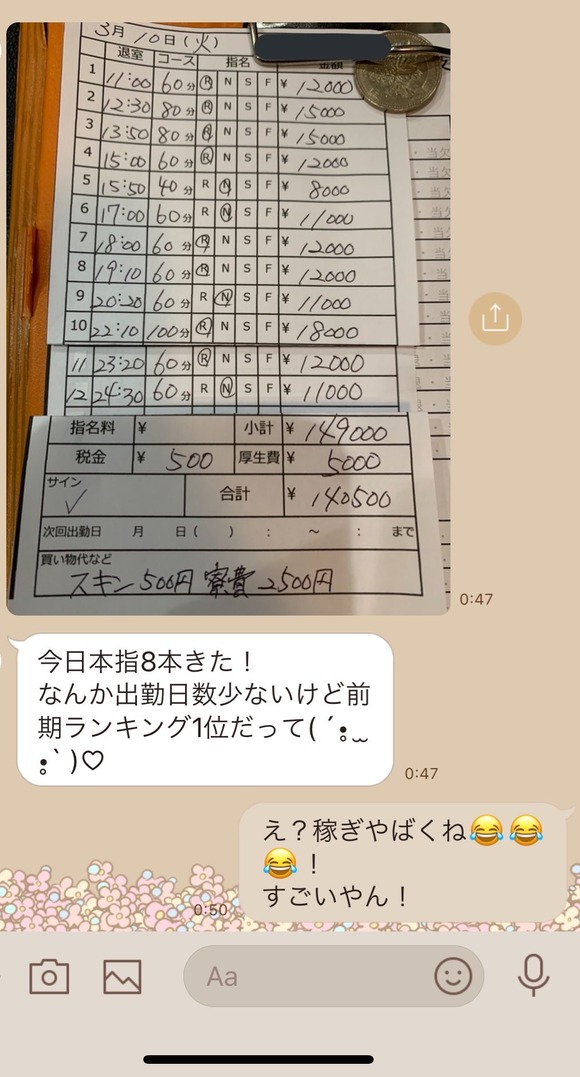 3月10日(火)
退室 コース 指名 金額
1 11:00 60分 R N S F ¥ 12000
2 12:30 80分 R N S F ¥ 15000
3 13:50 80分 R N S F ¥ 15000
4 15:00 60分 R N S F ¥ 12000
5 15:50 40分 R N S F ¥ 8000
6 17:00 60分 R N S F ¥ 11000
7 18:00 60分 R N S F ¥ 12000
8 19:10 60分 R N S F ¥ 12000
9 20:20 60分 R N S F ¥ 11000
10 22:10 100分 R N S F ¥ 18000
11 23:20 60分 R N S F ¥ 12000
12 24:30 60分 R N S F ¥ 11000
指名料 ¥ 小計 ¥ 149000
税金 ¥ 500 厚生費 ¥ 5000
サイン ✓ 合計 ¥ 140500
次回出勤日 月 日( ) : ~ : まで
買い物代など
スキン500円 寮費2500円
0:47
今日本指8本きた!
なんか出勤日数少ないけど前
期ランキング1位だって( ´•̥ ̫
•̥` )♡
0:47
え?稼ぎやばくね😂😂
😂!
すごいやん!
0:50
Aa